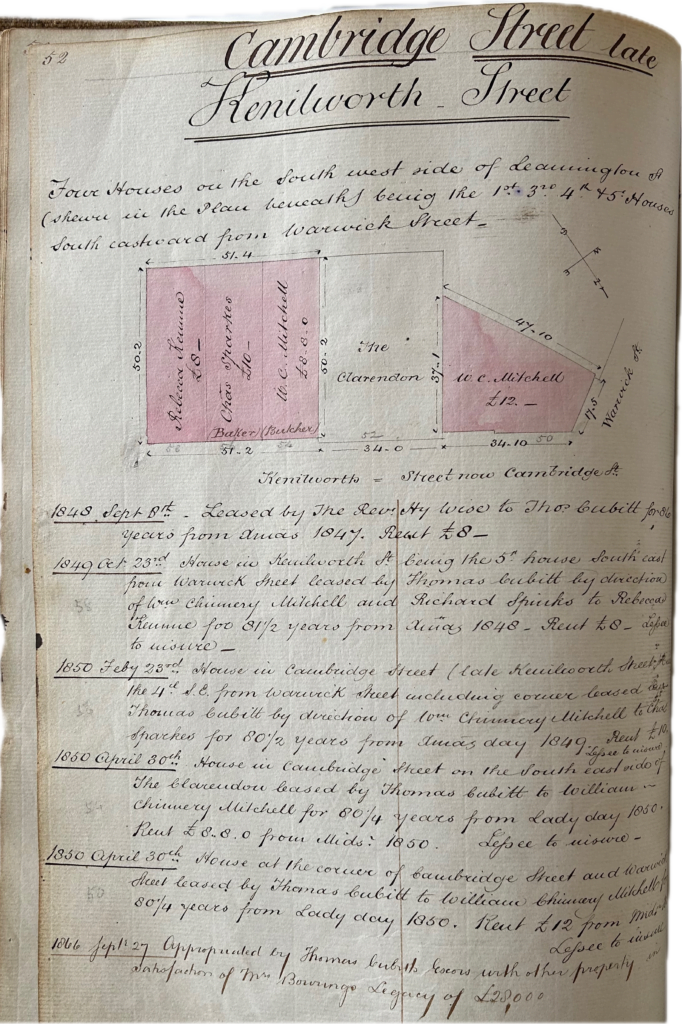 52
Cambridge Street late
Kenilworth Street
Four Houses on the South west side of Leamington St
(shewn in the Plan beneath) being the 1st 3rd 4th & 5th Houses
South eastward from Warwick Street_
51.4
50.2
Rebecca Kennne £8 –
Chas Sparkes £10 –
Baker
W. C. Mitchell £8.8.0
(Butcher)
50.2
The Clarendon
37.1
47.10
W. C. Mitchell £12. –
17.5
Warwick St
51.2
34.0
34.10
56
54
52
50
Kenilworth = Street now Cambridge St.
1848 Sept 8th – Leased by The Revd Hy Wise to Thos Cubitt for
years from Xmas 1847. Rent £8 –
1849 Oct 23rd House in Kenilworth St being the 5th house South east
from Warwick Street leased by Thomas Cubitt by direction
of Wm Chinnery Mitchell and Richard Spinks to Rebecca
for 81½ years from Xmas 1848 – Rent £8 – Lessee
to insure –
58
1850 Feby 23rd House in Cambridge Street (late Kenilworth Street,
the 4th S.E. from Warwick Street including corner leased by
Thomas Cubitt by direction of Wm Chinnery Mitchell to Chas
Sparkes for 80½ years from Xmas day 1849. Rent £10
Lessee to insure
56
1850 April 30th House in Cambridge Street on the South east side of
The Clarendon leased by Thomas Cubitt to William
Chinnery Mitchell for 80¼ years from Lady day 1850.
Rent £8.8.0 from Mids: 1850. Lessee to insure –
54
1850 April 30th House at the corner of Cambridge Street and Warwick
Street leased by Thomas Cubitt to William Chinnery Mitchell for
80¼ years from Lady day 1850. Rent £12 from Mids
Lessee to insure
50
1866 Septr 27 Appropriated by Thomas Cubitts Exors with other property in
Satisfaction of Mrs Bowrings Legacy of £28,000